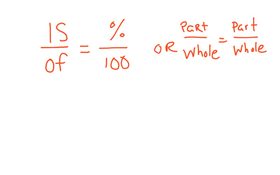 IS/of = %/100 OR Part/Whole = Part/Whole